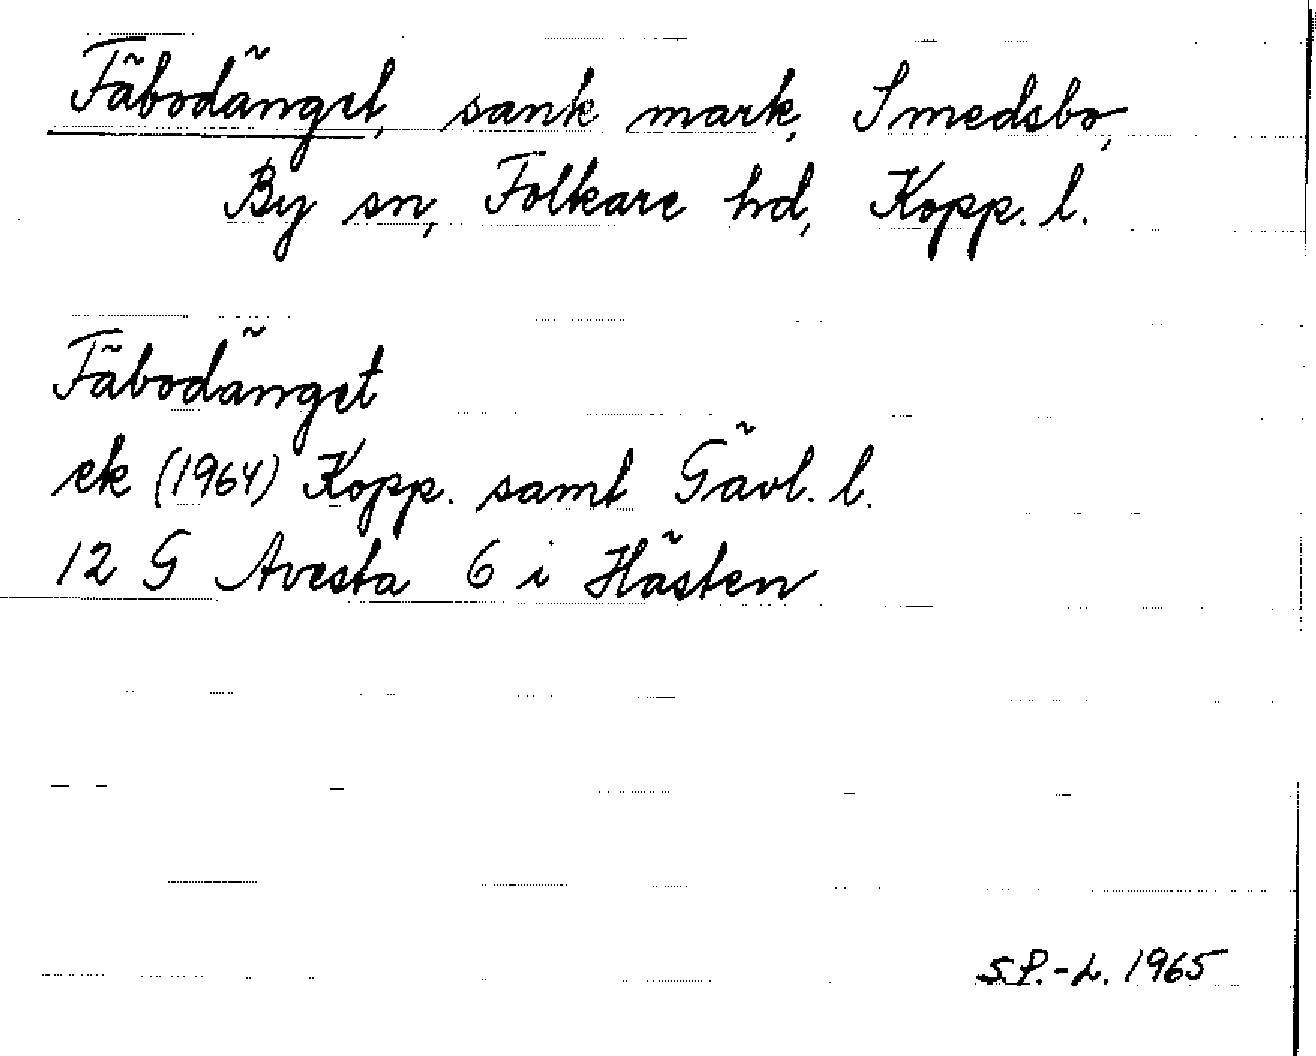 Fäbodänget, sank mark, Smedsbo,
By sn, Folkare hd, Kopp. l.
Fäbodänget
ek (1964) Kopp. samt Gävl. l.
12 G Avesta 6 i Hästen
S.P.-L. 1965